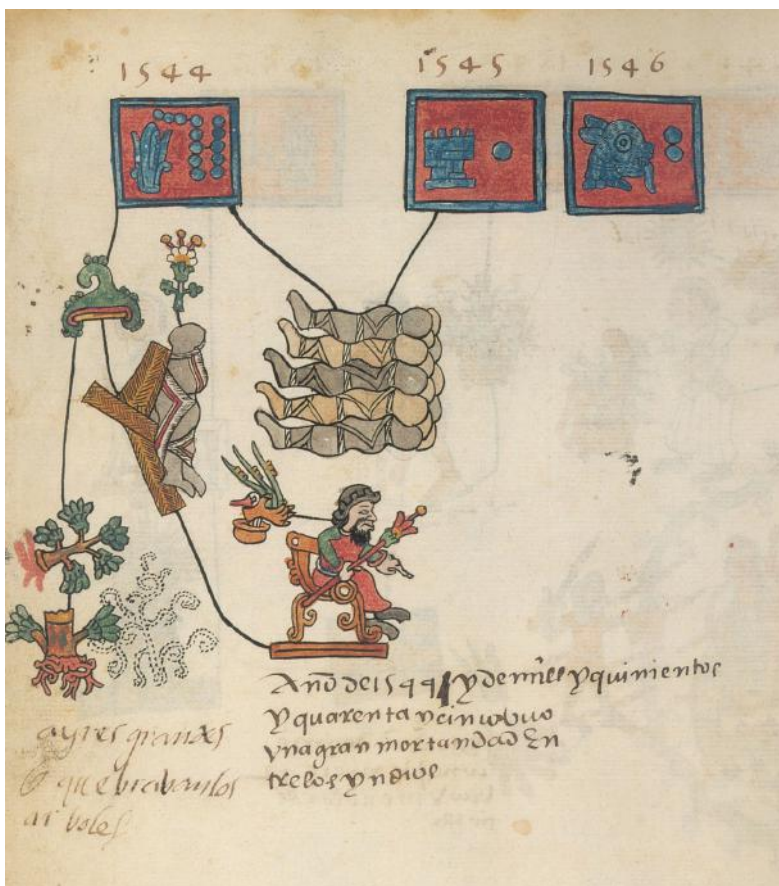 1544
1545 1546
Año de 1544 y de mill y quinientos
y quarenta y cinco vbuo
vna gran mortandad En
tre los yndios
ayres grandes
que bravan los
arboles